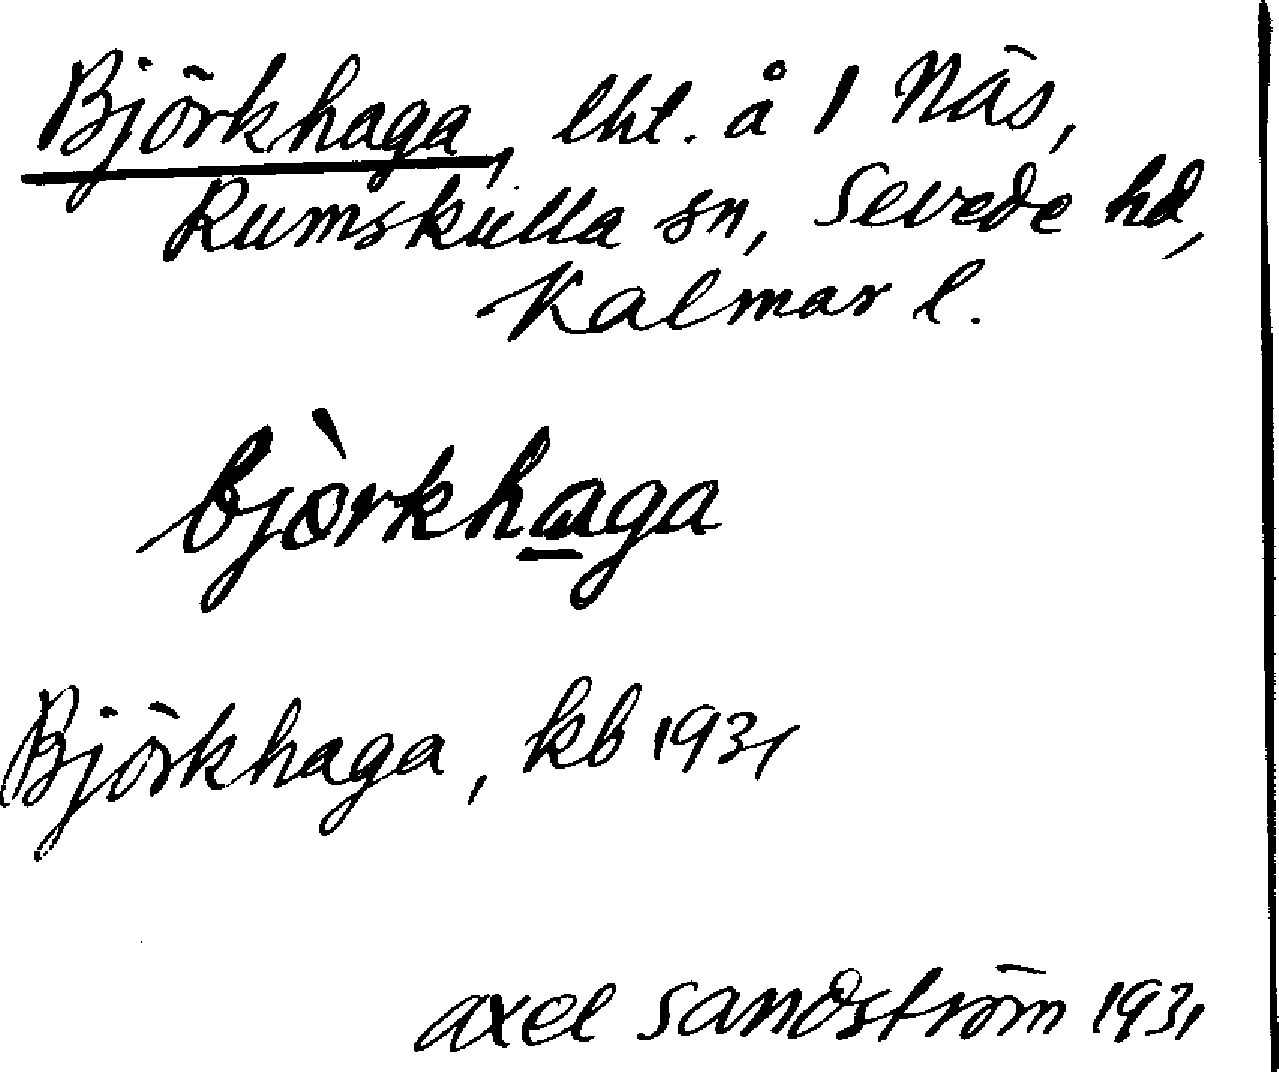 Björkhaga, lht. å 1 Näs,
Rumskulla sn, Sevede hd,
Kalmar l.
bjòrkhaga
Björkhaga, kb 1931
Axel Sandström 1931